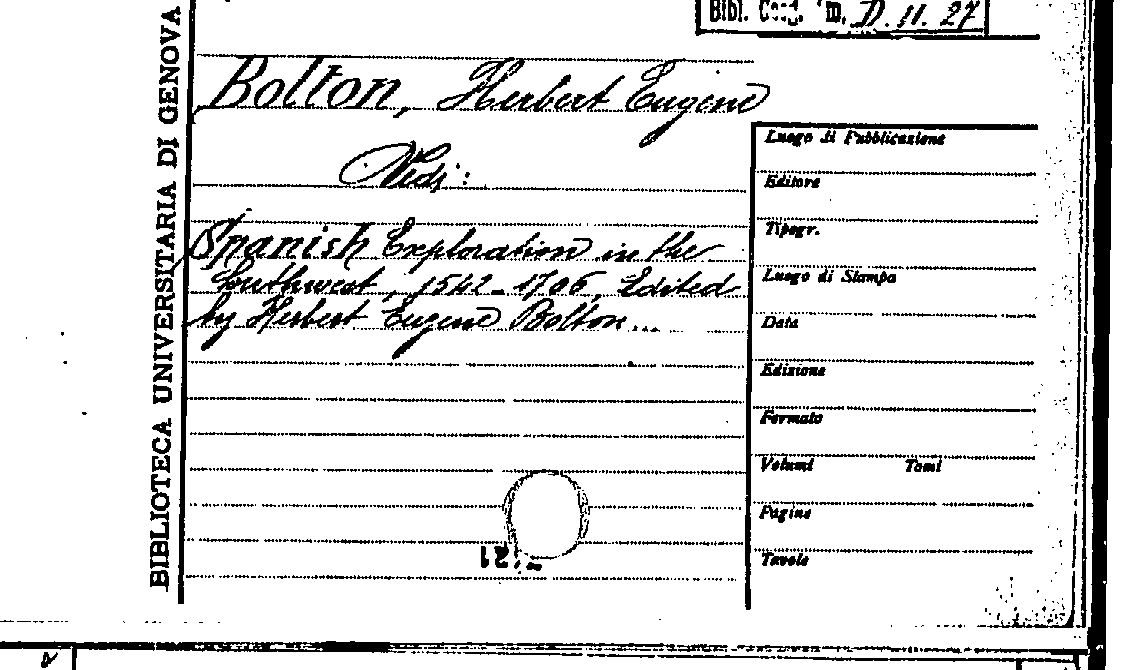 BIBLIOTECA UNIVERSITARIA DI GENOVA
Bibl. D. 11. 27
Bolton, Herbert Eugene
Vedi:
Spanish Exploration in the
Southwest, 1542-1706, Edited
by Herbert Eugene Bolton...
Luogo di Pubblicazione
Editore
Tipogr.
Luogo di Stampa
Data
Edizione
Formato
Volumi Tomi
Pagine
Tavole